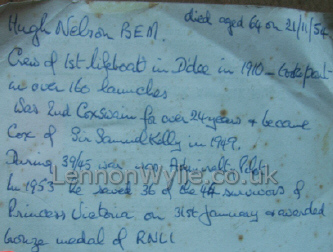 Hugh Nelson BEM. died aged 64 on 21/11/54
Crew of 1st lifeboat in D'dee in 1910 – took part
in over 160 launches
Was 2nd Coxswain for over 24 years + became
Cox of Sir Samuel Kelly in 1949.
During 39/45 war was Admiralty Pilot
LennonWylie.co.uk
In 1953 he saved 36 of the 44 survivors of
Princess Victoria on 31st January + awarded
bronze medal of RNLI